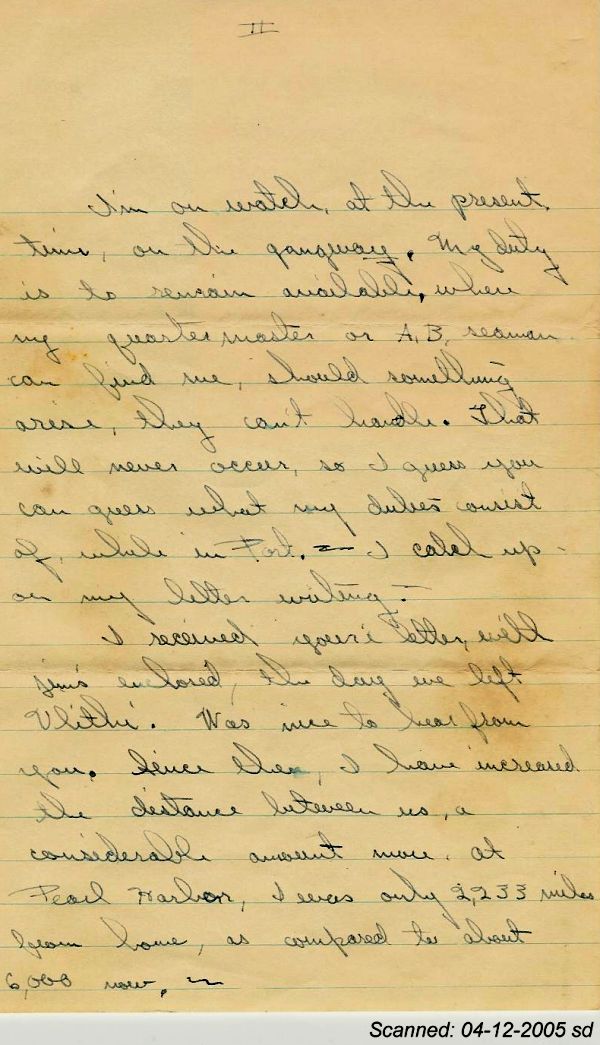 II
I'm on watch, at the present
time, on the gangway. My duty
is to remain available, where
my quartermaster or A.B. seaman
can find me, should something
arise, they can't handle. That
will never occur, so I guess you
can guess what my duties consist
of, while in Port. — I catch up
on my letter writing. —
I received your letter, with
Jim's enclosed, the day we left
Ulithi. Was nice to hear from
you. Since then, I have increased
the distance between us, a
considerable amount more. At
Pearl Harbor, I was only 2,233 miles
from home, as compared to about
6,000 now. ~
Scanned: 04-12-2005 sd